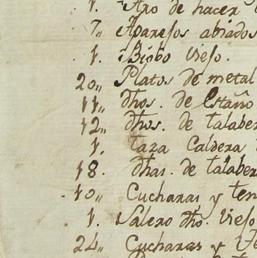 1. Aro de hacer
7,, Aparejos abiados
1. Biobo Viejo.
20,, Platos de metal
11,, dhos. de Estaño
12,, dhos. de talaber
1. taza Caldera
18. dhas. de talaber
10,, Cucharas y ten
1. Salero dho. Viejo
24,, Cucharas y Te